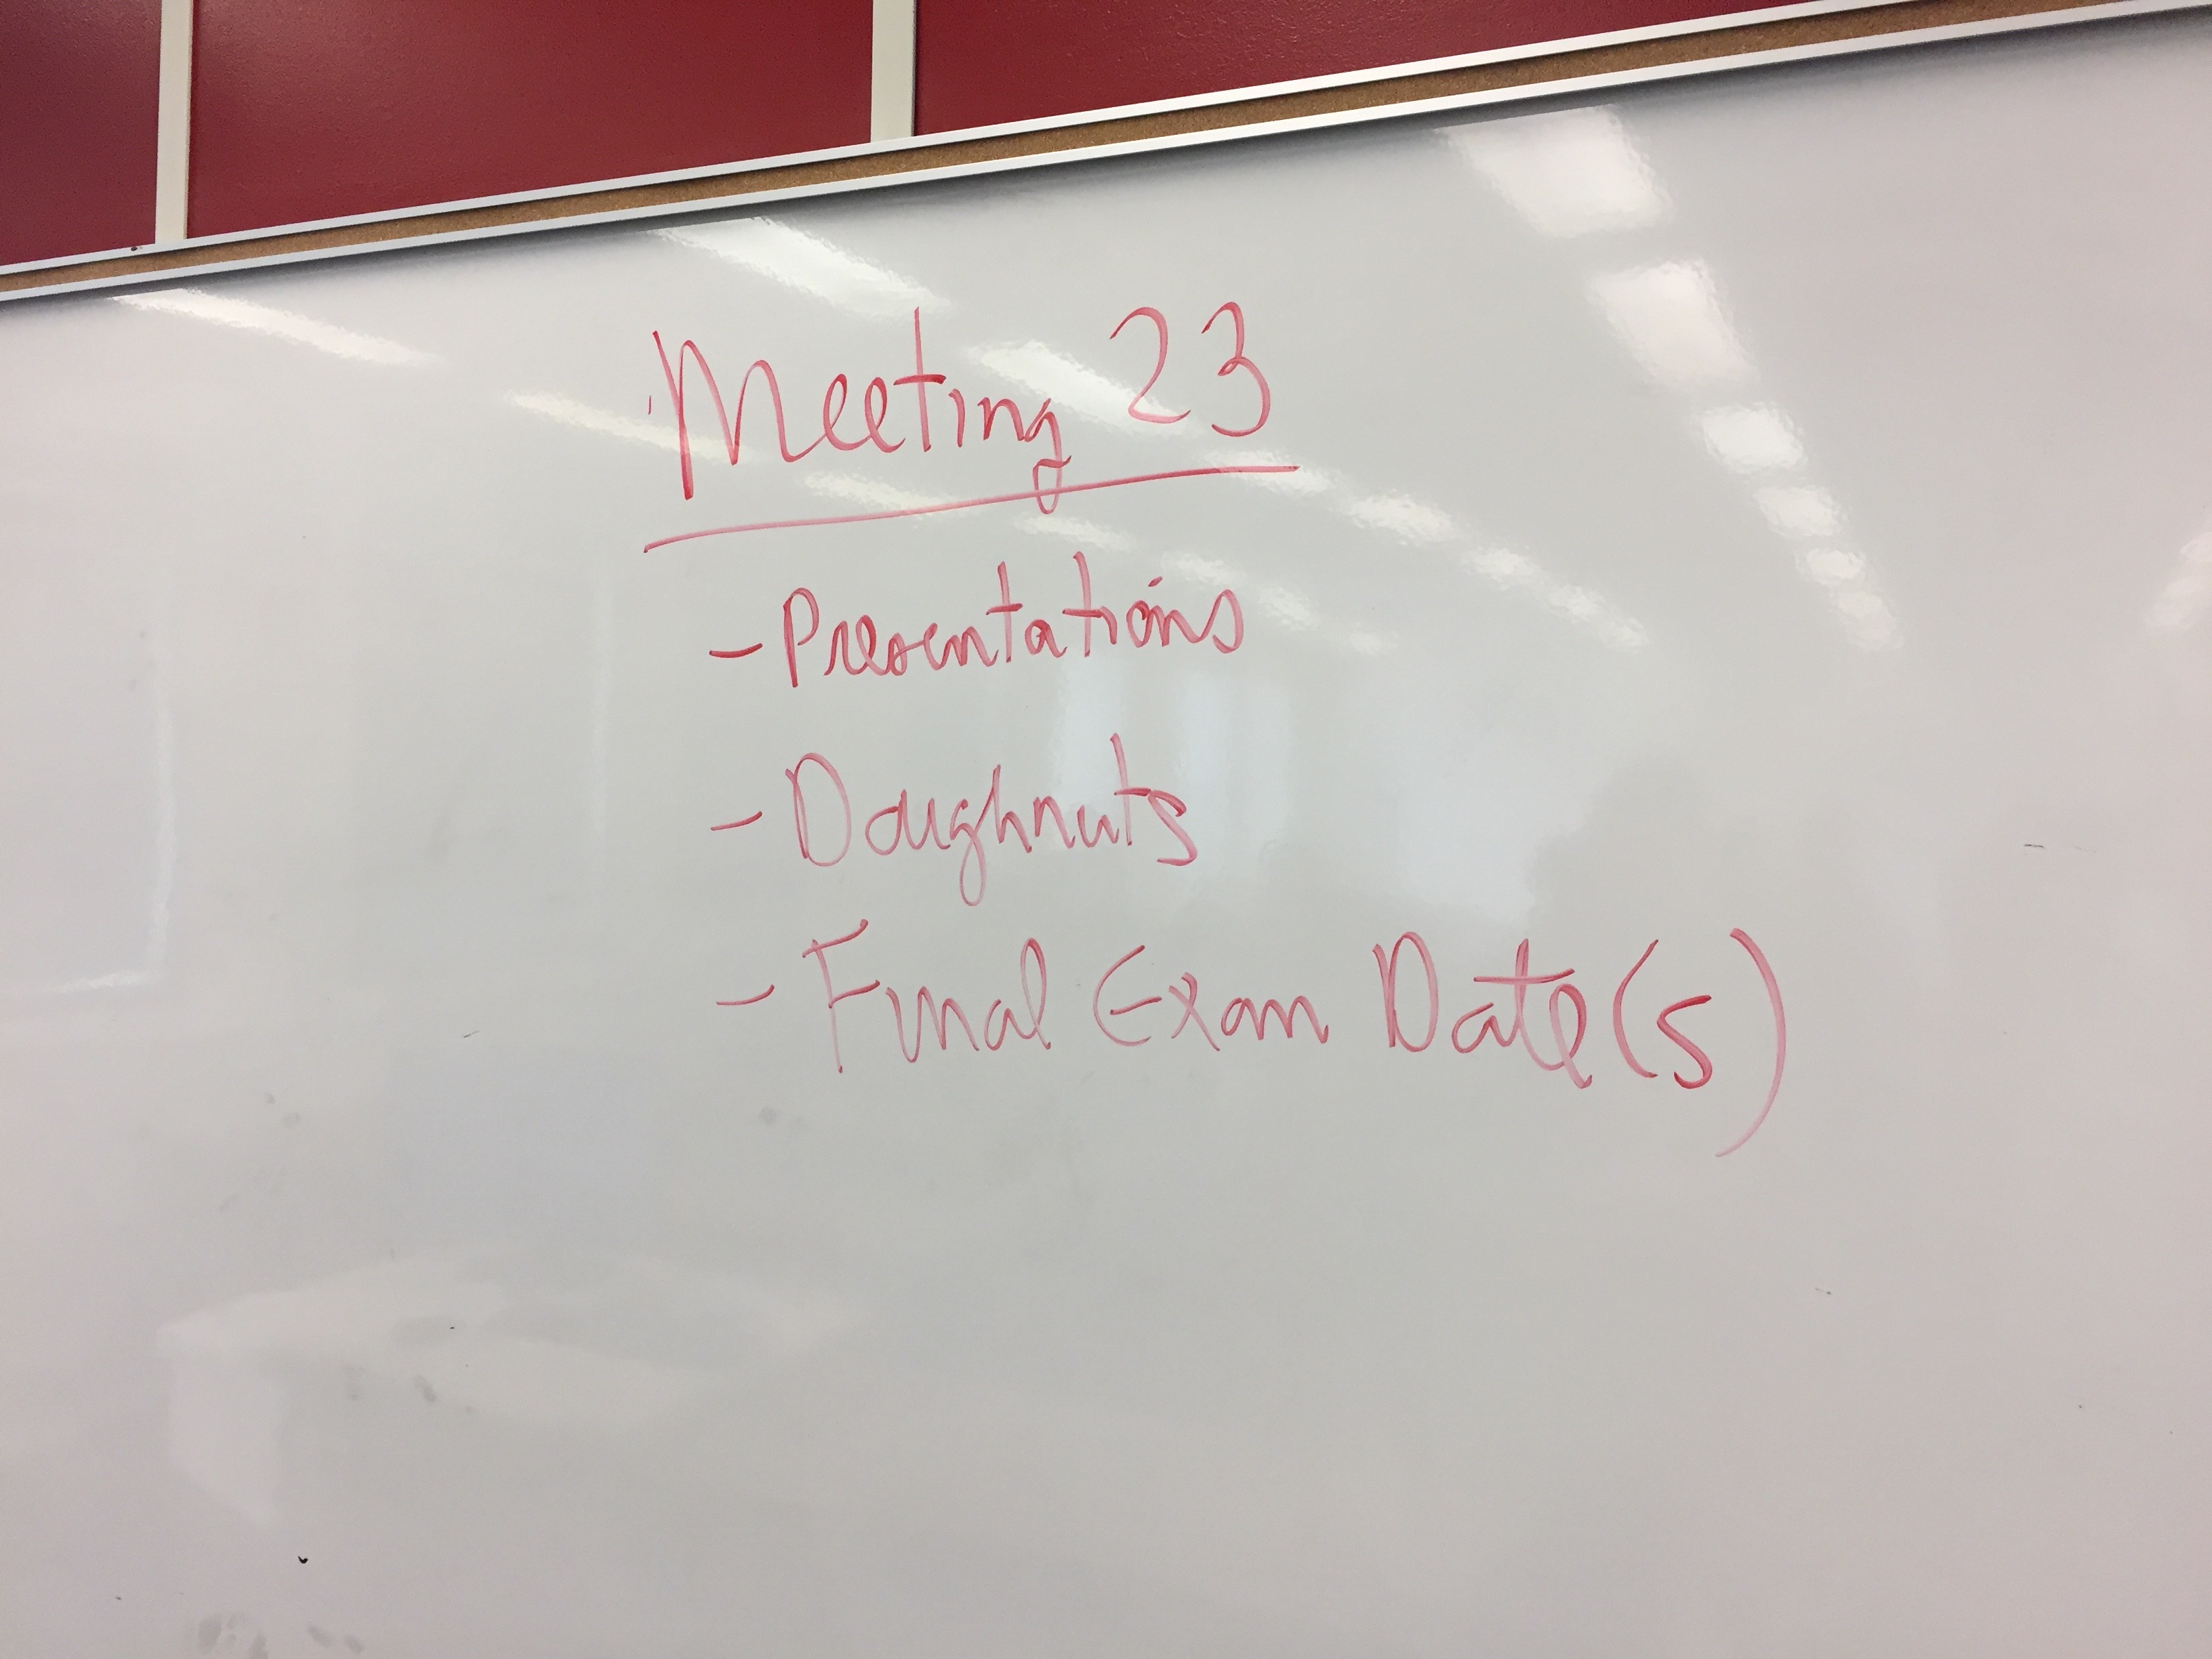 Meeting 23
- Presentations
- Doughnuts
- Final Exam Date(s)